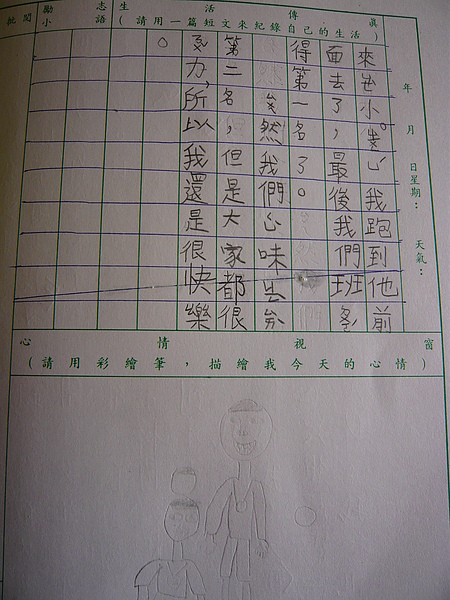 年 月 日 星期： 天氣：
生活傳真
(請用一篇短文來紀錄自己的生活)
勵志小語
來 小 我跑到他前
面去了，最後我們班
得第一名了。
然我們
第二名，但是大家都很
力，所以我還是很快樂
。
心情視窗
(請用彩繪筆，描繪我今天的心情)